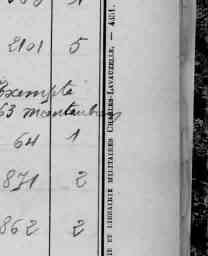 2101 5
Exempté
63 montauban
64 1
871 2
862 2
IE ET LIBRAIRIE MILITAIRES CHARLES-LAVAUZELLE, — 4351.